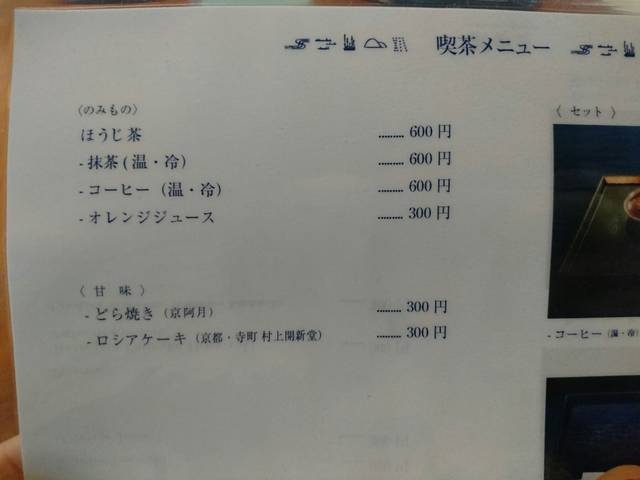 喫茶メニュー
〈のみもの〉
ほうじ茶 ......... 600 円
- 抹茶 (温・冷) ......... 600 円
- コーヒー (温・冷) ......... 600 円
- オレンジジュース ......... 300 円
〈 甘 味 〉
- どら焼き (京阿月) ......... 300 円
- ロシアケーキ (京都・寺町 村上開新堂) ......... 300 円
〈 セット 〉
- コーヒー (温・冷)